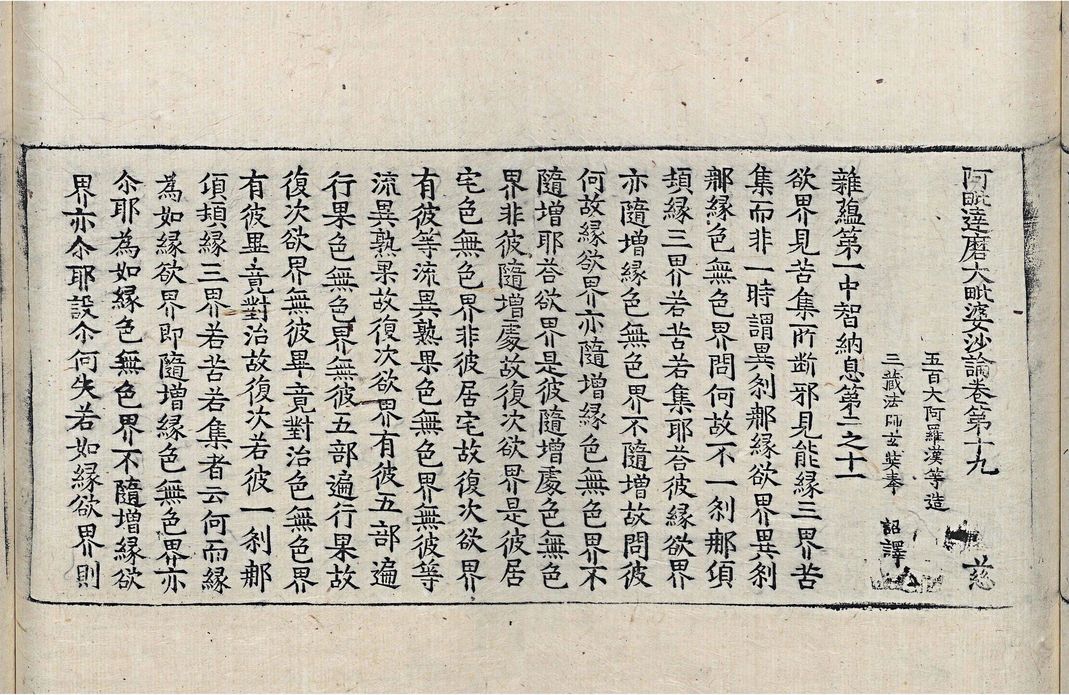 阿毗達磨大毗婆沙論卷第十九 慈
五百大阿羅漢等造
三藏法師玄奘奉 詔譯
雜蘊第一中智納息第二之十一
欲界見苦集所断邪見能緣三界苦
集而非一時謂異刹那緣欲界異刹
那緣色無色界問何故不一刹那頃
頓緣三界若苦若集耶荅彼緣欲界
亦隨增緣色無色界不隨增故問彼
何故緣欲界亦隨增緣色無色界不
隨增耶荅欲界是彼隨增處色無色
界非彼隨增處故復次欲界是彼居
宅色無色界非彼居宅故復次欲界
有彼等流異熟果色無色界無彼等
流異熟果故復次欲界有彼五部遍
行果色無色界無彼五部遍行果故
復次欲界無彼畢竟對治色無色界
有彼畢竟對治故復次若彼一刹那
頃頓緣三界若苦若集者云何而緣
為如緣欲界即隨增緣色無色界亦
尒耶為如緣色無色界不隨增緣欲
界亦尒耶設尒何失若如緣欲界則